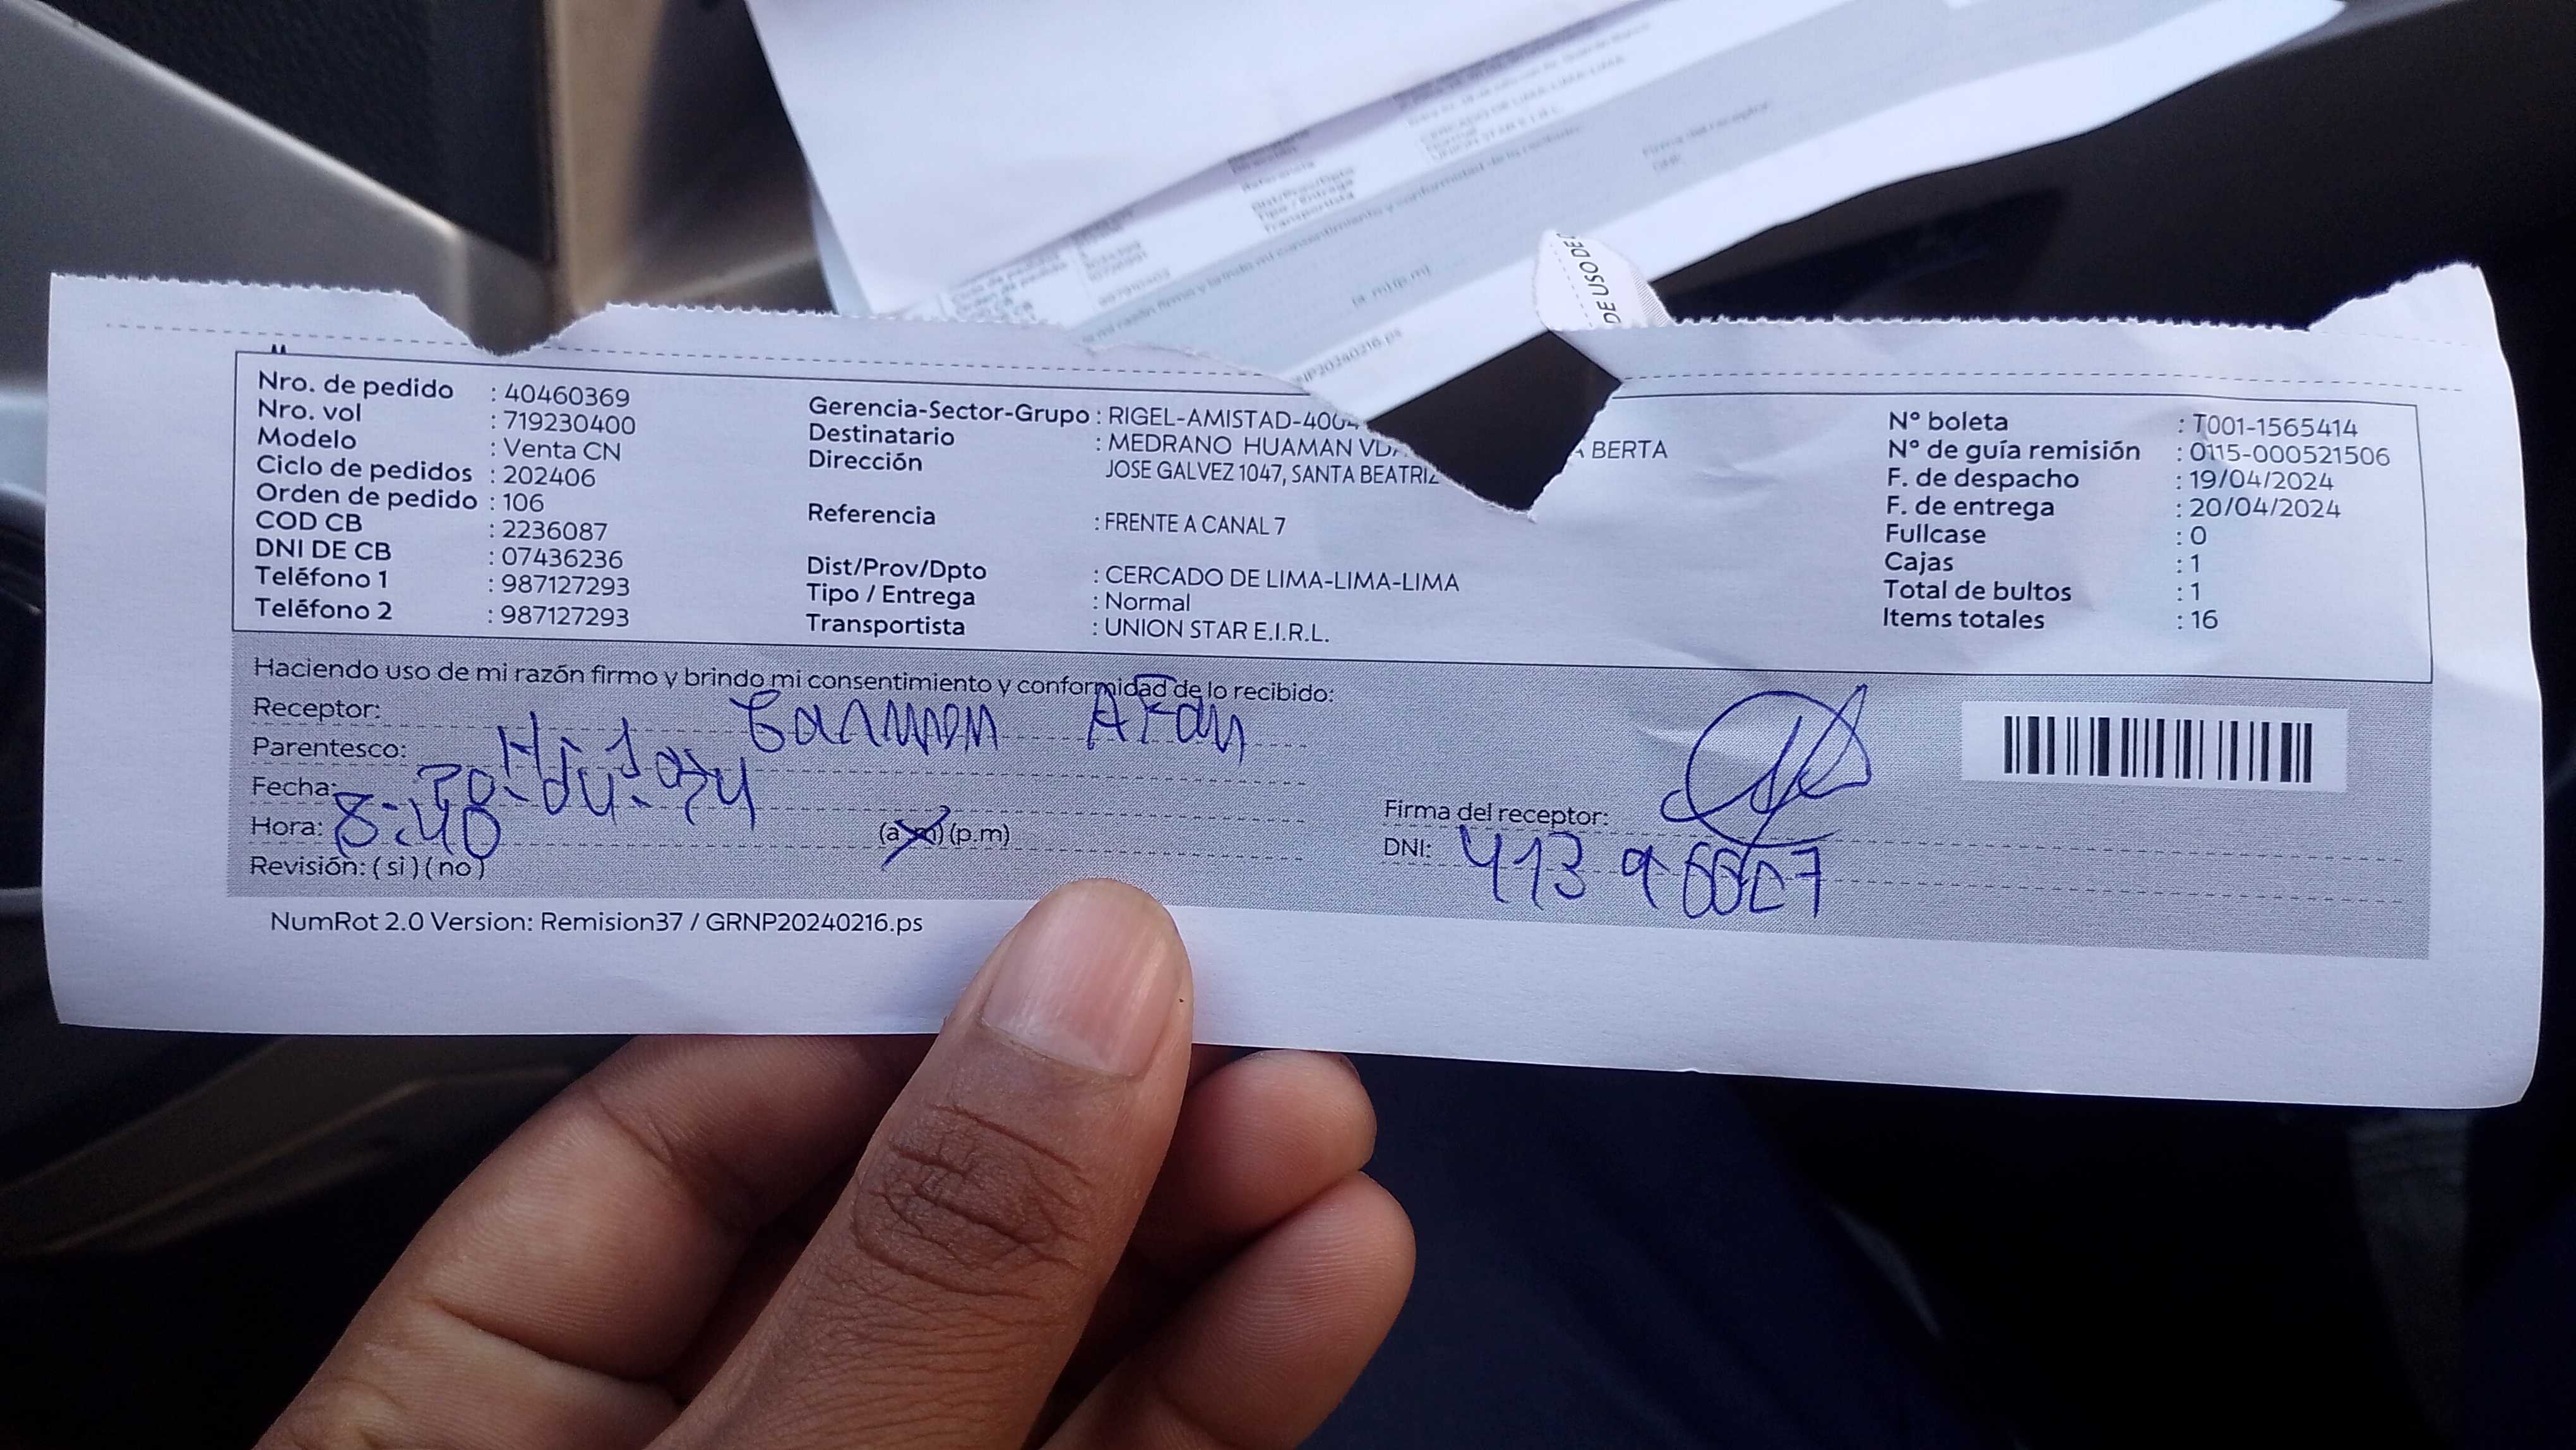 DE USO DE
Nro. de pedido : 40460369
Nro. vol : 719230400
Modelo : Venta CN
Ciclo de pedidos : 202406
Orden de pedido : 106
COD CB : 2236087
DNI DE CB : 07436236
Teléfono 1 : 987127293
Teléfono 2 : 987127293
Gerencia-Sector-Grupo : RIGEL-AMISTAD-400
Destinatario : MEDRANO HUAMAN BERTA
Dirección JOSE GALVEZ 1047, SANTA BEATRIZ
Referencia : FRENTE A CANAL 7
Dist/Prov/Dpto : CERCADO DE LIMA-LIMA-LIMA
Tipo / Entrega : Normal
Transportista : UNION STAR E.I.R.L.
Nº boleta : T001-1565414
Nº de guía remisión : 0115-000521506
F. de despacho : 19/04/2024
F. de entrega : 20/04/2024
Fullcase : 0
Cajas : 1
Total de bultos : 1
Items totales : 16
Haciendo uso de mi razón firmo y brindo mi consentimiento y conformidad de lo recibido:
Receptor: Carmen
Parentesco:
Fecha:
Hora: 8:40 (a.m) (p.m)
Revisión: (si) (no)
Firma del receptor:
DNI:
NumRot 2.0 Version: Remision37 / GRNP20240216.ps